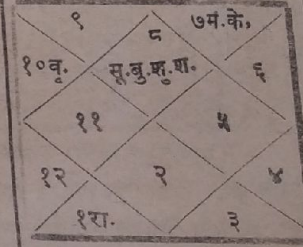 ९ ८ ७मं.के,
१०वृ. सू.बु.शु.श. ६
११ ५
१२ २ ४
१रा. ३